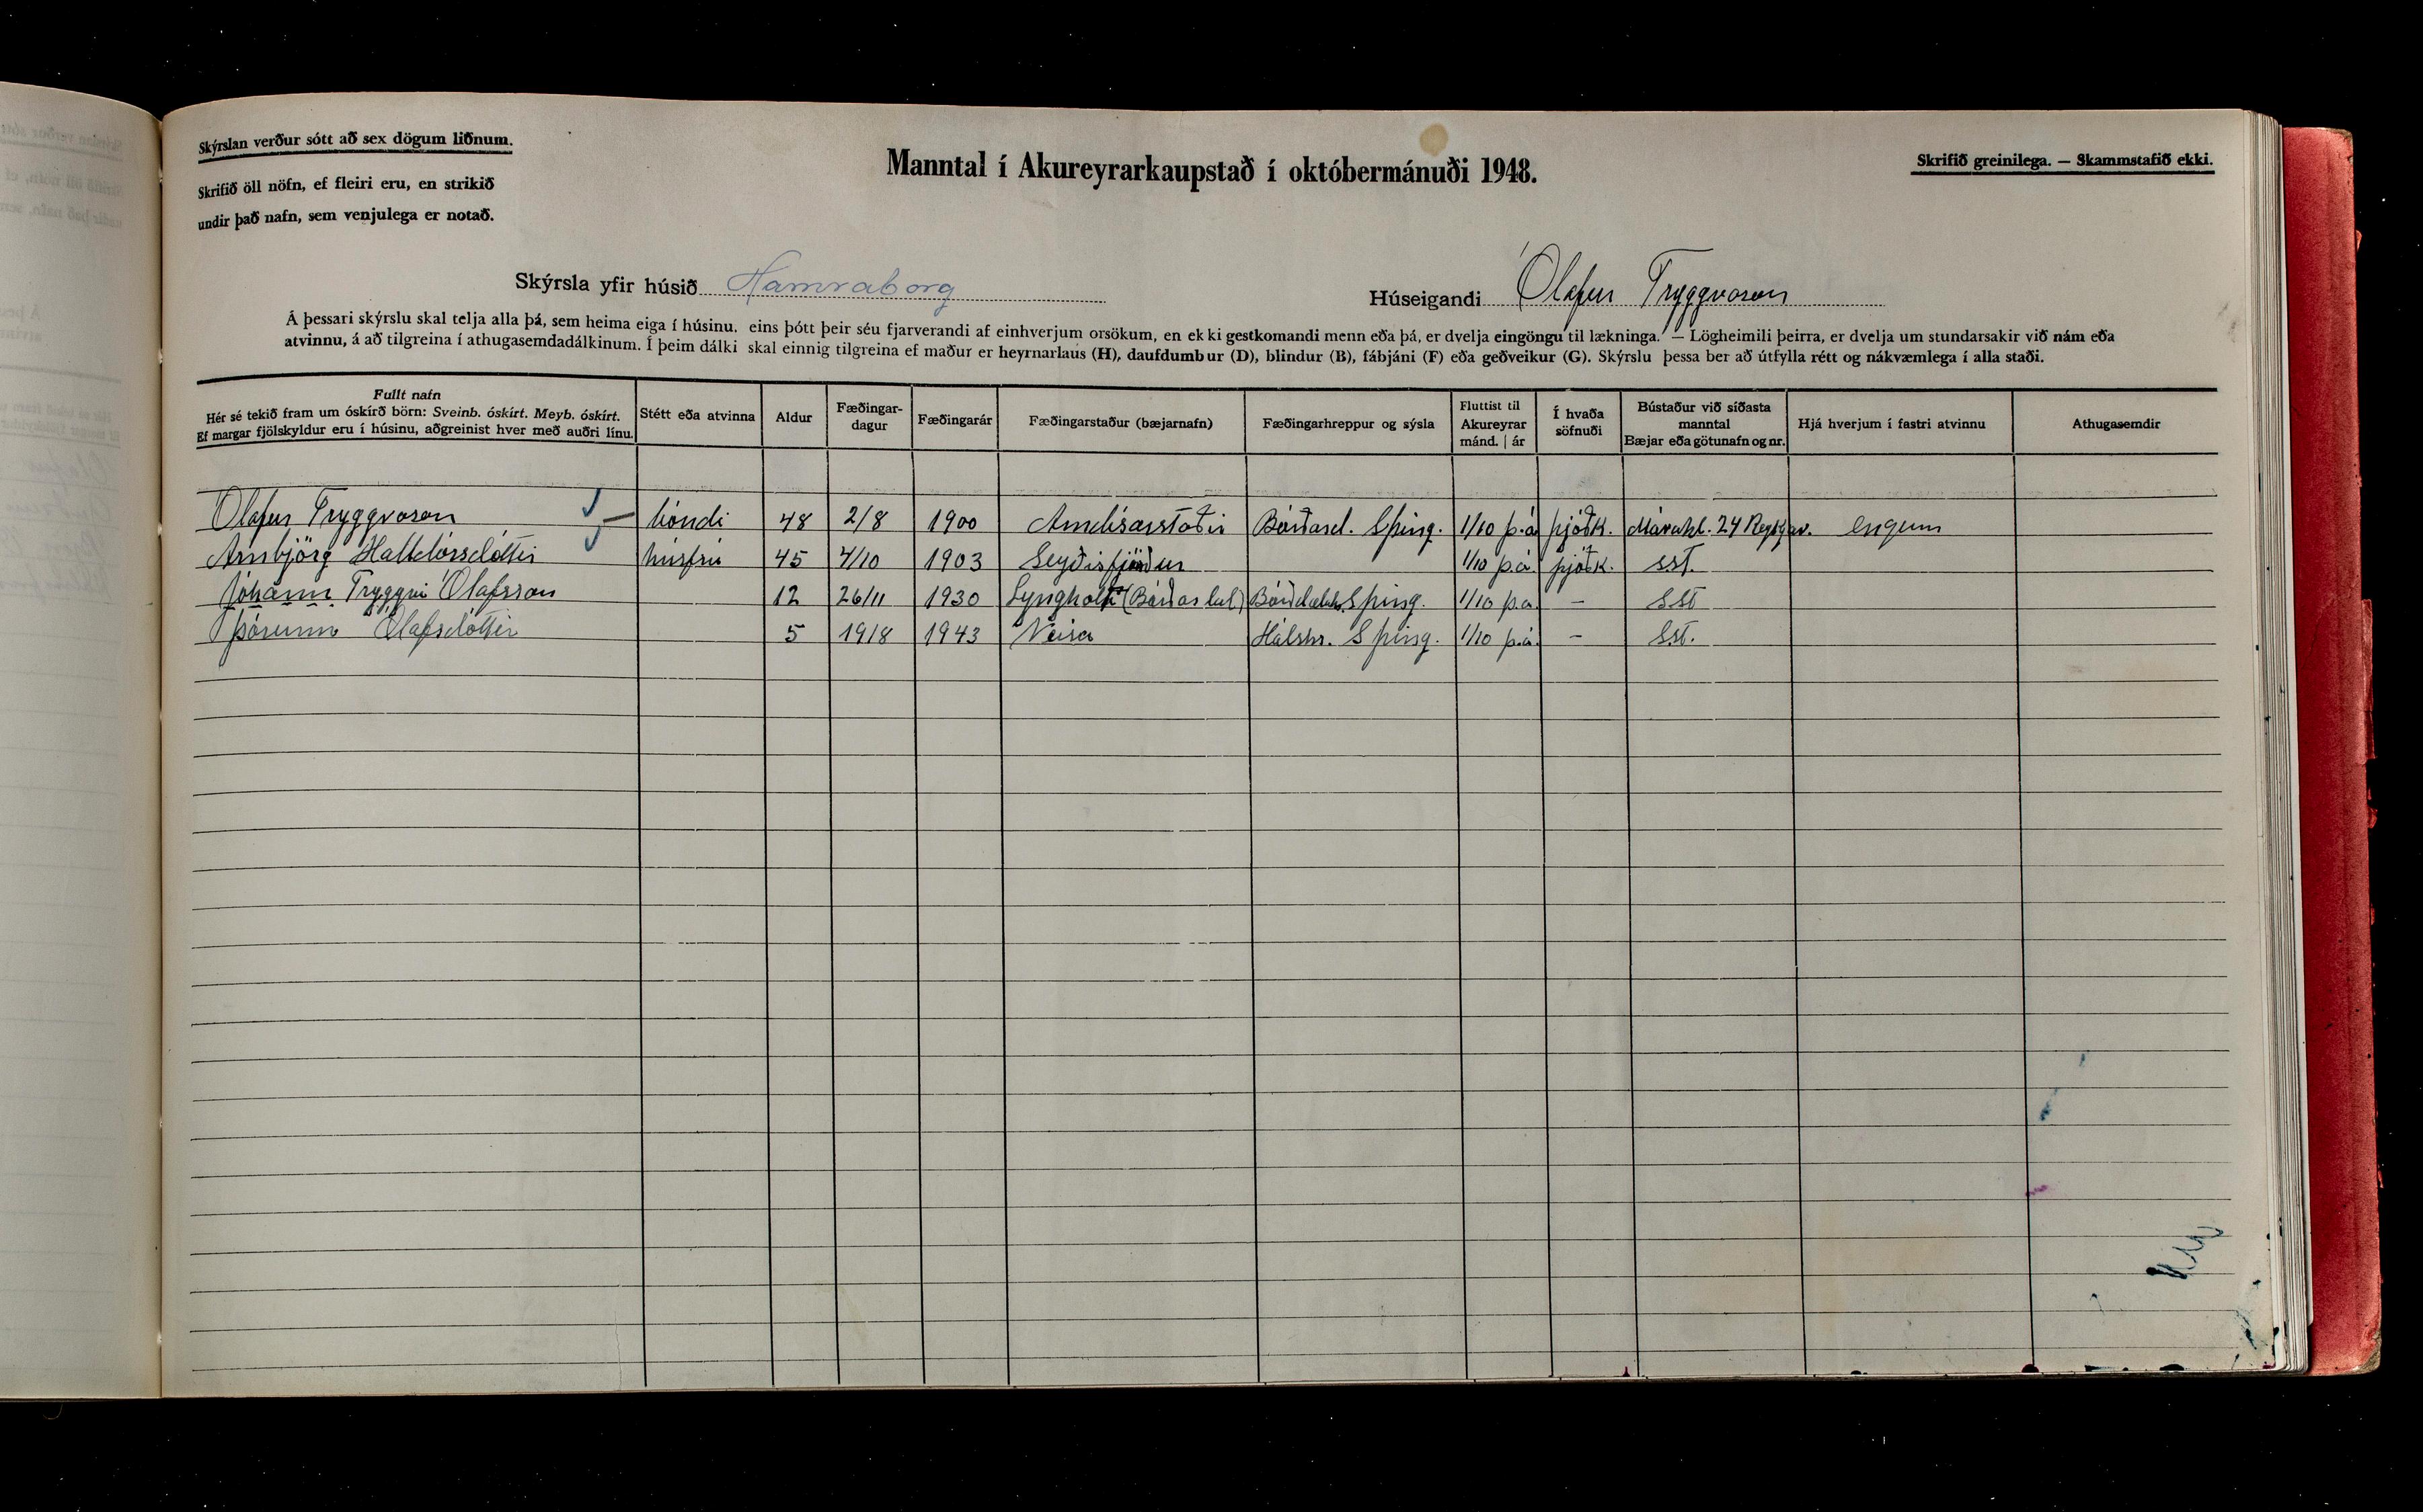 Skýrslan verður sótt að sex dögum liðnum.
Skrifið öll nöfn, ef fleiri eru, en strikið
undir það nafn, sem venjulega er notað.
Manntal í Akureyrarkaupstað í októbermánuði 1948.
Skrifið greinilega. — Skammstafið ekki.
Skýrsla yfir húsið Hamraborg
Húseigandi Ólafur Tryggvason
Á þessari skýrslu skal telja alla þá, sem heima eiga í húsinu. eins þótt þeir séu fjarverandi af einhverjum orsökum, en ekki gestkomandi menn eða þá, er dvelja eingöngu til lækninga. — Lögheimili þeirra, er dvelja um stundarsakir við nám eða
atvinnu, á að tilgreina í athugasemdadálkinum. Í þeim dálki skal einnig tilgreina ef maður er heyrnarlaus (H), daufdumbur (D), blindur (B), fábjáni (F) eða geðveikur (G). Skýrslu þessa ber að útfylla rétt og nákvæmlega í alla staði.
Fullt nafn
Hér sé tekið fram um óskírð börn: Sveinb. óskírt. Meyb. óskírt.
Ef margar fjölskyldur eru í húsinu, aðgreinist hver með auðri línu.
Stétt eða atvinna
Aldur
Fæðingar-
dagur
Fæðingarár
Fæðingarstaður (bæjarnafn)
Fæðingarhreppur og sýsla
Fluttist til
Akureyrar
mánd. | ár
Í hvaða
söfnuði
Bústaður við síðasta
manntal
Bæjar eða götunafn og nr.
Hjá hverjum í fastri atvinnu
Athugasemdir
Ólafur Tryggvason bóndi 48 2/8 1900 Arndísarstaðir Bárðard. S þing. 1/10 þ.á. þjóðk. Mávahl. 24 Reykjav. engum
Arnbjörg Halldórsdóttir húsfrú 45 4/10 1903 Seyðisfjörður 1/10 þ.á. þjóðk. sst.
Jóhann Tryggvi Ólafsson 12 26/11 1930 Lyngholt (Bárðardal) S þing. 1/10 þ.á. – sst
Þórunn Ólafsdóttir 5 19/8 1943 Veisa Hálshr. S þing. 1/10 þ.á. – sst.